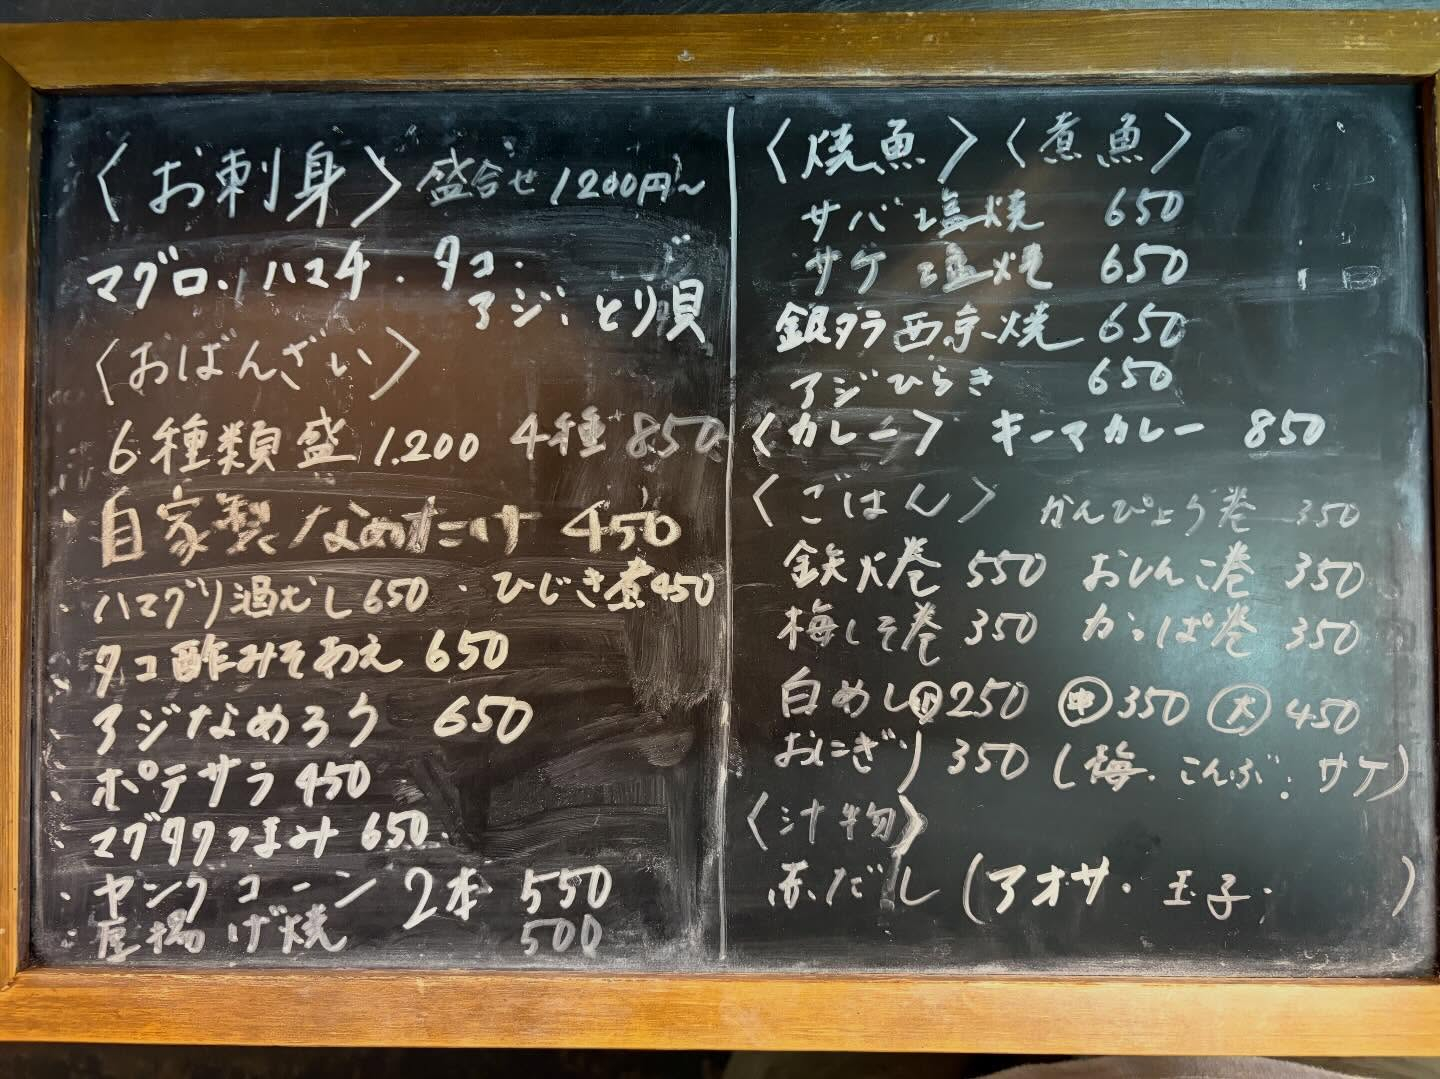 〈お刺身〉盛合せ 1200円〜
マグロ.ハマチ.タコ.
アジ.とり貝
〈おばんざい〉
6種類盛 1.200 4種 850
・自家製なめたけ 450
・ハマグリ酒むし 650 ・ひじき煮 450
・タコ酢みそあえ 650
・アジなめろう 650
・ポテサラ 450
・マグタクつまみ 650
・ヤングコーン 2本 550
・厚揚げ焼 500
〈焼魚〉〈煮魚〉
サバ塩焼 650
サケ塩焼 650
銀ダラ西京焼 650
アジひらき 650
〈カレー〉 キーマカレー 850
〈ごはん〉 かんぴょう巻 350
鉄火巻 550 おしんこ巻 350
梅しそ巻 350 かっぱ巻 350
白めし㊙小250 ㊥350 大450
おにぎり 350 (梅.こんぶ.サケ)
〈汁物〉
赤だし (アオサ.玉子. )